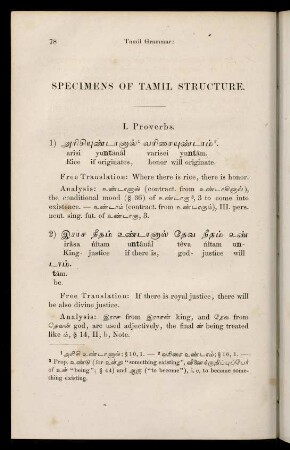 78 Tamil Grammar:
SPECIMENS OF TAMIL STRUCTURE.
I. Proverbs.
1) அரிசியுண்டானால்¹ வரிசையுண்டாம்².
arisi yuntânâl varisei yuntâm.
Rice if originates, honor will originate.
Free Translation: Where there is rice, there is honor.
Analysis: உண்டானால் (contract. from உண்டாகினால்),
the conditional mood (§ 36) of உண்டாகு³, 3 to come into
existence. — உண்டாம் (contract. from உண்டாகும்), III. pers.
neut. sing. fut. of உண்டாகு, 3.
2) இராச நீதம் உண்டானால் தேவ நீதம் உண்
irâsa nîtam untânâl têva nîtam un-
King- justice if there is, god- justice will
டாம்.
tâm.
be.
Free Translation: If there is royal justice, there will
be also divine justice.
Analysis: இராச from இராசன் king, and தேவ from
தேவன் god, are used adjectively, the final ன் being treated
like ம், § 14, II, b, Note.
¹ அரிசி உண்டானால்: § 10, 1. — ² வரிசை உண்டாம்: § 10, 1. —
³ Prop. உண்டு (for உள்து "something existing",
of உள் "being"; § 44) and ஆகு ("to become"), i. e. to become some-
thing existing.